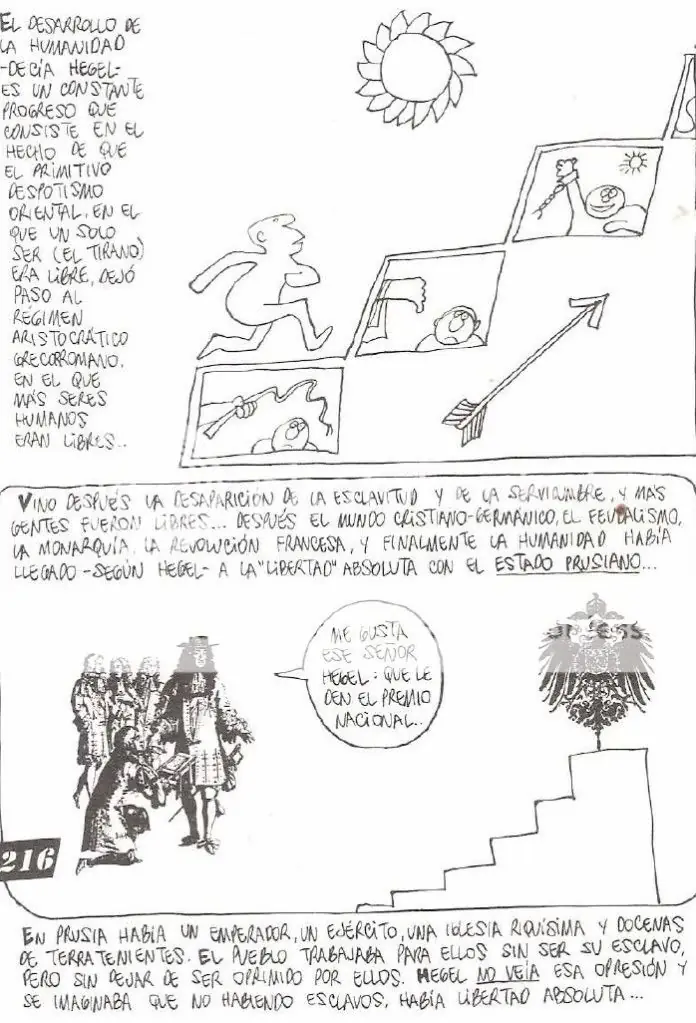 EL DESARROLLO DE
LA HUMANIDAD
-DECÍA HEGEL-
ES UN CONSTANTE
PROGRESO QUE
CONSISTE EN EL
HECHO DE QUE
EL PRIMITIVO
DESPOTISMO
ORIENTAL, EN EL
QUE UN SOLO
SER (EL TIRANO)
ERA LIBRE, DEJÓ
PASO AL
RÉGIMEN
ARISTOCRÁTICO
GRECORROMANO,
EN EL QUE
MÁS SERES
HUMANOS
ERAN LIBRES..
VINO DESPUÉS LA DESAPARICIÓN DE LA ESCLAVITUD Y DE LA SERVIDUMBRE, Y MÁS
GENTES FUERON LIBRES... DESPUÉS EL MUNDO CRISTIANO-GERMÁNICO, EL FEUDALISMO,
LA MONARQUÍA, LA REVOLUCIÓN FRANCESA, Y FINALMENTE LA HUMANIDAD HABÍA
LLEGADO -SEGÚN HEGEL- A LA "LIBERTAD" ABSOLUTA CON EL ESTADO PRUSIANO...
ME GUSTA
ESE SEÑOR
HEGEL: QUE LE
DEN EL PREMIO
NACIONAL..
216
EN PRUSIA HABÍA UN EMPERADOR, UN EJÉRCITO, UNA IGLESIA RIQUÍSIMA Y DOCENAS
DE TERRATENIENTES. EL PUEBLO TRABAJABA PARA ELLOS SIN SER SU ESCLAVO,
PERO SIN DEJAR DE SER OPRIMIDO POR ELLOS. HEGEL NO VEÍA ESA OPRESIÓN Y
SE IMAGINABA QUE NO HABIENDO ESCLAVOS, HABÍA LIBERTAD ABSOLUTA...